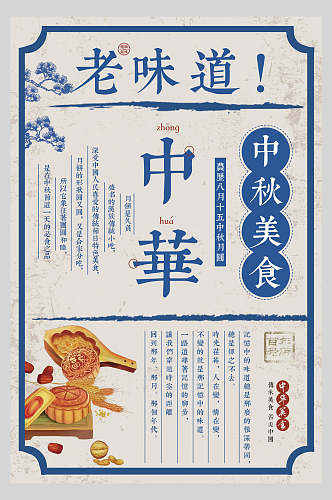 老味道！
zhōng
中
huá
華
中秋美食
農歷八月十五中秋月圓
月餅是久負
盛名的漢族傳統小吃，
深受中國人民喜愛的傳統節日特色美食，
月餅的形狀圓又圓，又是合家分吃，
所以它象征著團圓和睦，
是在中秋節這一天的必食之品
記憶中的味道總是那麽的根深蒂固，
總是揮之不去。
時光荏苒，人在變，情在變，
不變的就是那記憶中的味道。
一路追尋著記憶的腳步，
讓我們穿越時夸的距離
回到那年、那月、那個年代。
百年
老店
中华美食
傳承美食 舌尖中國